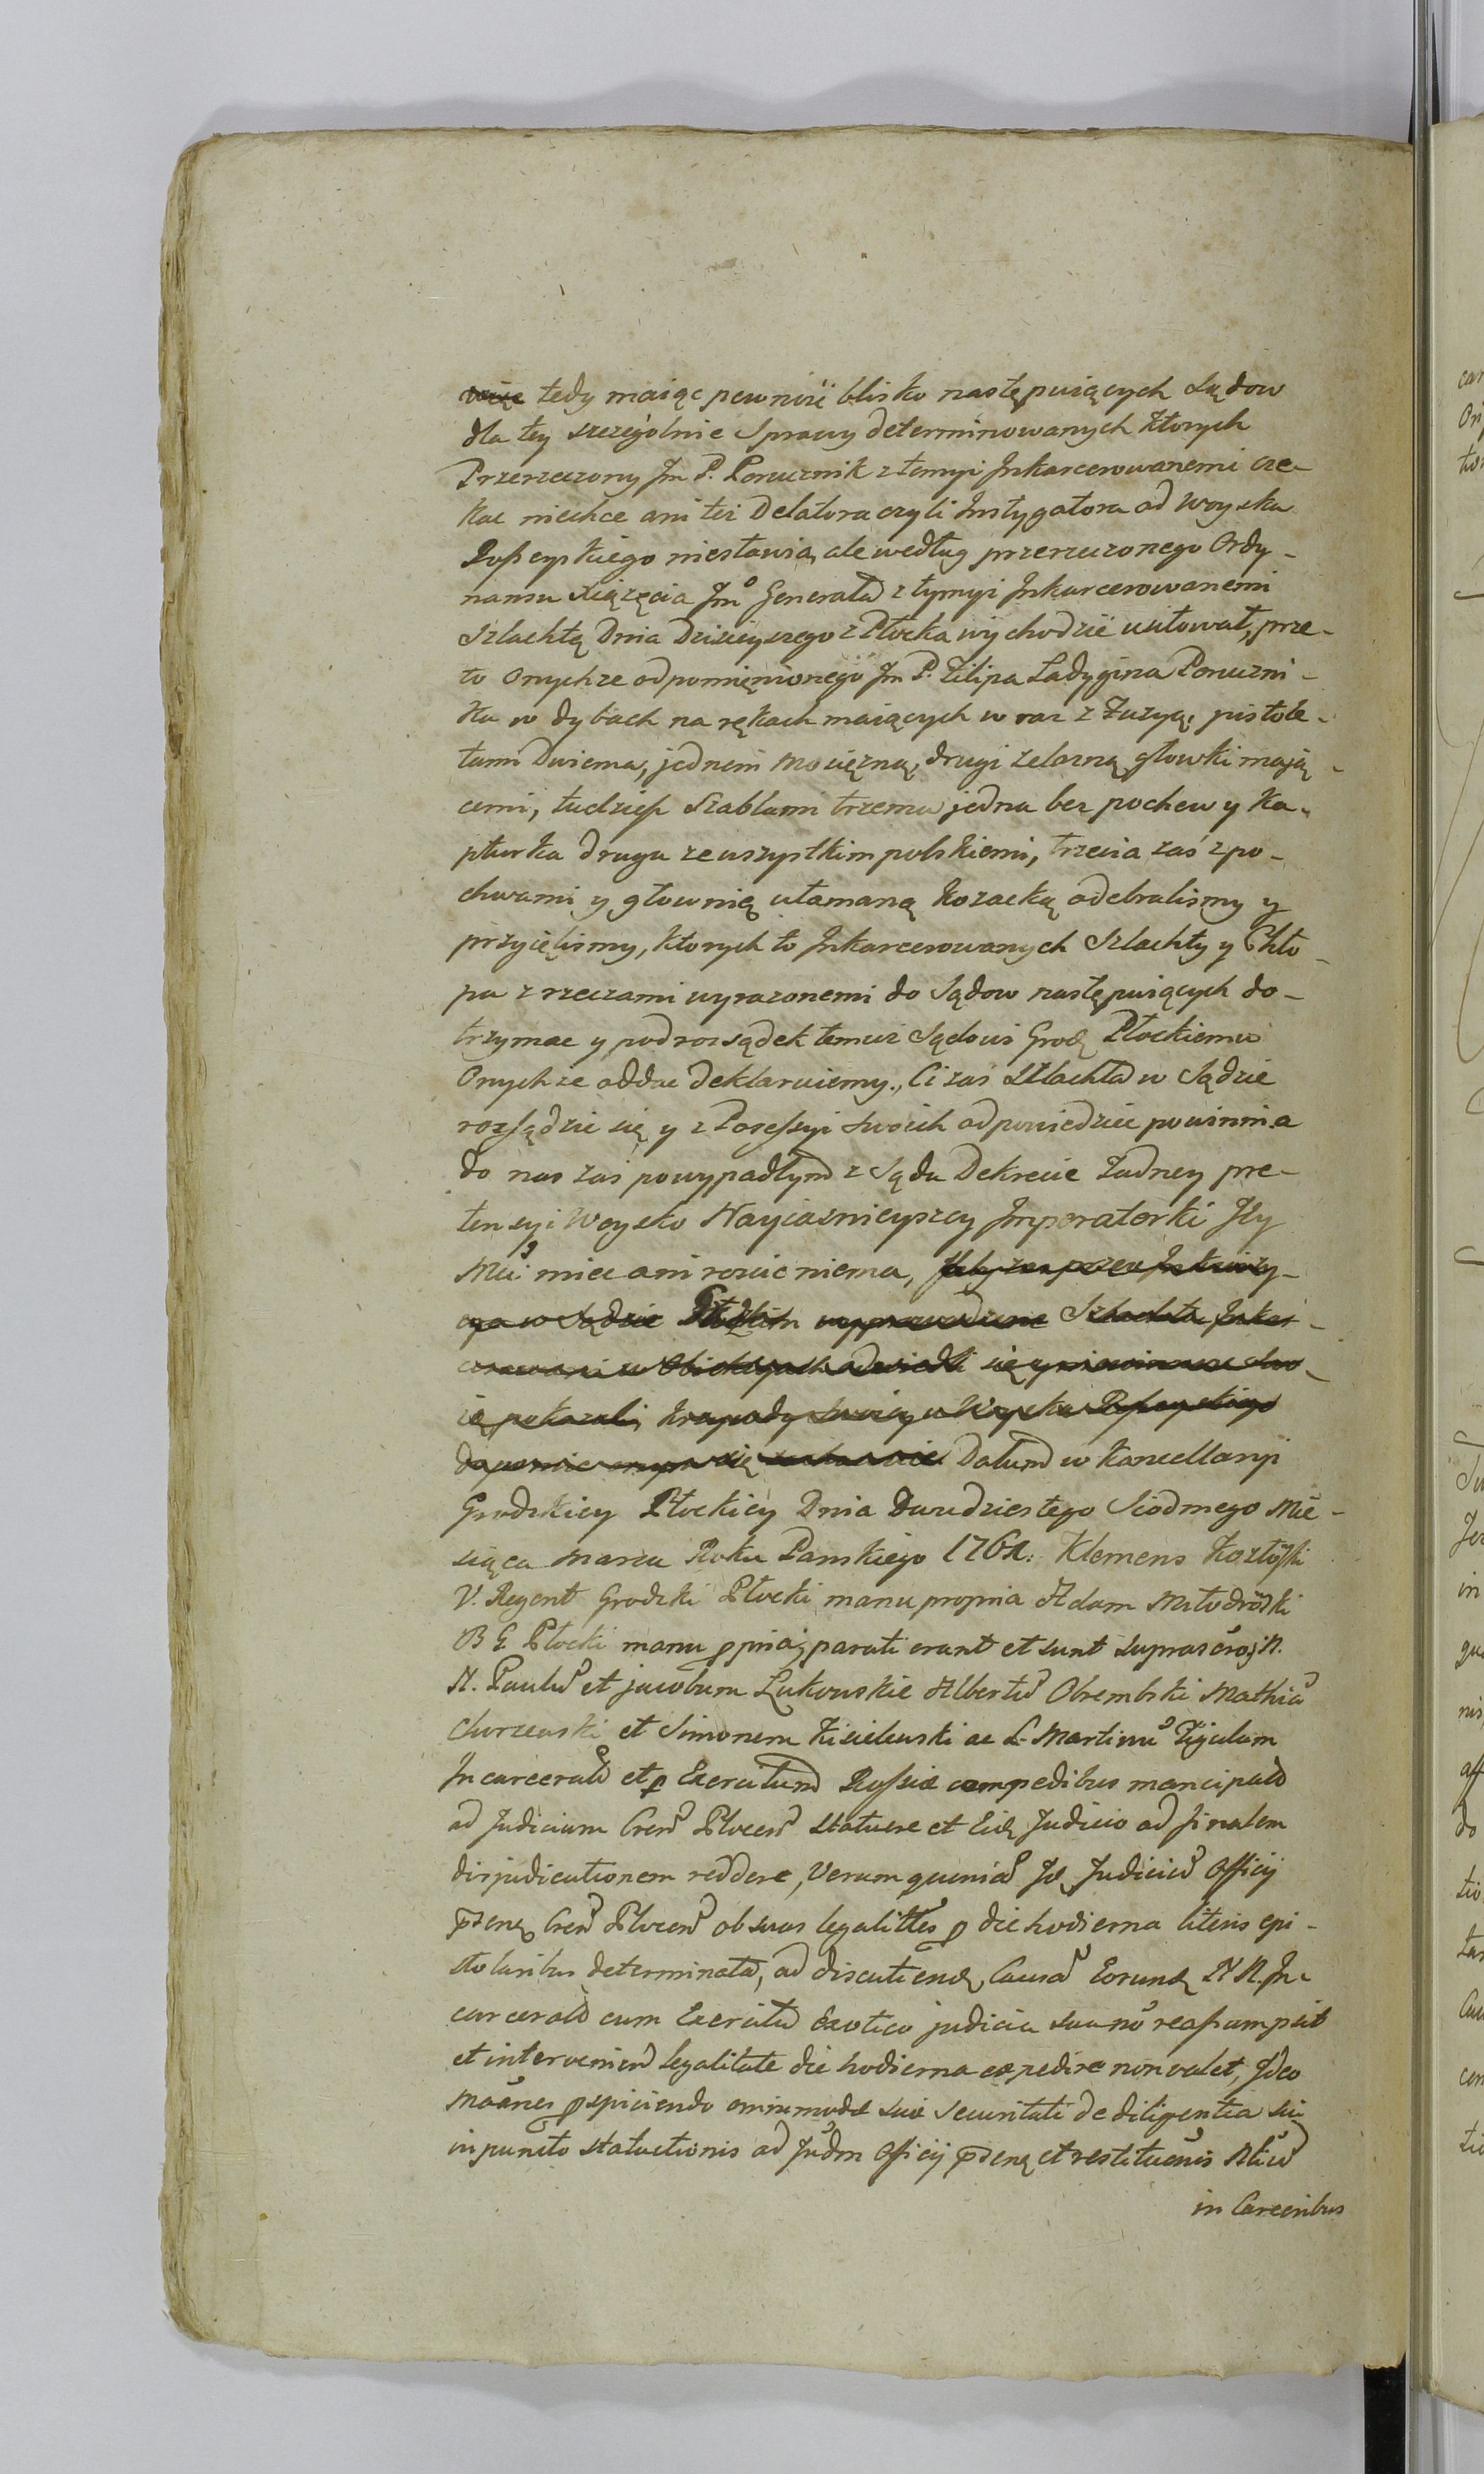 więc tedy maiąc pewność blisko następuiących Sądow
dla tey szczegolnie Sprawy determinowanych ktorych
Przerzeczony Jm P. Porucznik z temyi Inkarcerowanemi cze-
kac niechce ani też Delatora czyli Instygatora od woyska
Rossyiskiego niestawia, ale według przerzeczonego Ordy-
nansu Xiązęcia Jmo Generała z tymyi Inkarcerowanemi
Szlachtą Dnia Dzisieyszego z Płocka wychodzić usiłował, prze-
to Onychze od pomienionego Jm P. Filipa Ladygina Poruczni-
ka w dybach na rękach maiących w raz z Fuzyą, pistole-
tami Dwiema, jednem mosięzną, drugi zelazną głowki mają-
cemi, tudzież Szablami trzema jedna bez pochew y ka-
pturka druga ze wszystkim polskiemi, trzecia zaś z po-
chwami y głownią ułamaną kozacką odebralismy y
przyięlismy, ktorych to Inkarcerowanych Szlachty y Chło-
pa z rzeczami wyrazonemi do Sądow następuiących do-
trzymac y pod rozsądek temuz Sądowi Grodz Płockiemu
Onychze oddac deklaruiemy., Ci zas Szlachta w Sądzie
rozsądzic się y z Posessyi swoich odpowiedziec powinni a
do nas zas po wypadłym z Sądu Dekrecie Zadney pre-
tensyi Woysko Nayiasnieyszey Imperatorki Jey
Mci miec ani roscic niema,
w Sądzie wyprowadzone Szlachta Inkar-
się y niewinnosc swo-
ię pokazali, w Woysku Rossyiskiego
się Datum w Kancellaryi
Grodzkiey Płockiey Dnia Dwudziestego Siodmego Mie-
siąca Marca Roku Panskiego 176 : Klemens
V. Regent Grodzki Płocki manu propria Adam Miłodroski
B G Płocki manu ppria, parati erant et sunt suprascros N.
N. Paulu et jacobum Lukowskie Albertu Obrembski Mathia
Chorzewski et Simonem Kisielewski ac L. Martinu Figulum
Incarceratos et p Exercitum Russiæ compedibus mancipatos
ad Judicium Cren Plocen Statuere et Eidem Judicio ad finalem
dirjudicationem reddere, Verum quonia Id Judiciu Officij
psens Cren Plocen ob suas legalittes p die hodierna literis epi-
stolaribus determinata, ad discutiend Causa Eorund N N. In-
carcerato cum Exercitu Exotico judicia sua no reassumpsit
et intervenien legalitate die hodierna expedire non valet, Ideo
Moanes pspiciendo omnimodæ suæ securitati de diligentia sui
in puncto statuitionis ad Judm Officij psens et restituenis
in Carceribus